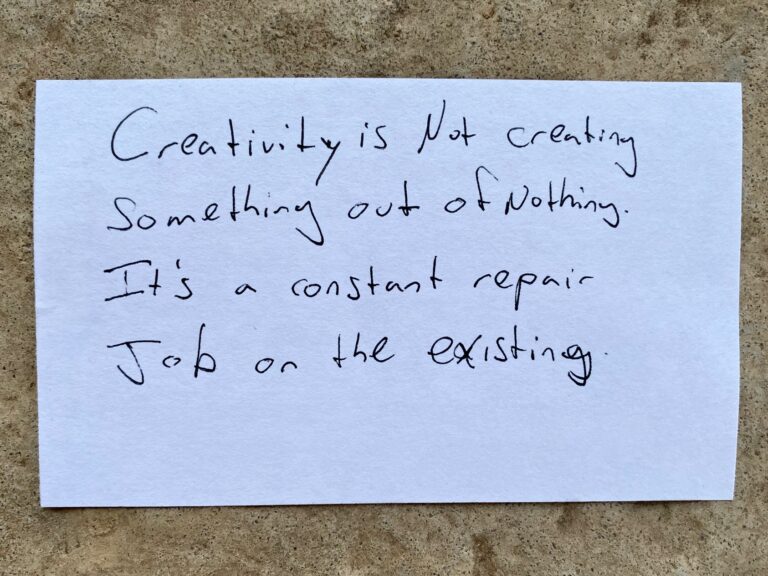 Creativity is Not creating
Something out of Nothing.
It's a constant repair
Job on the existing.